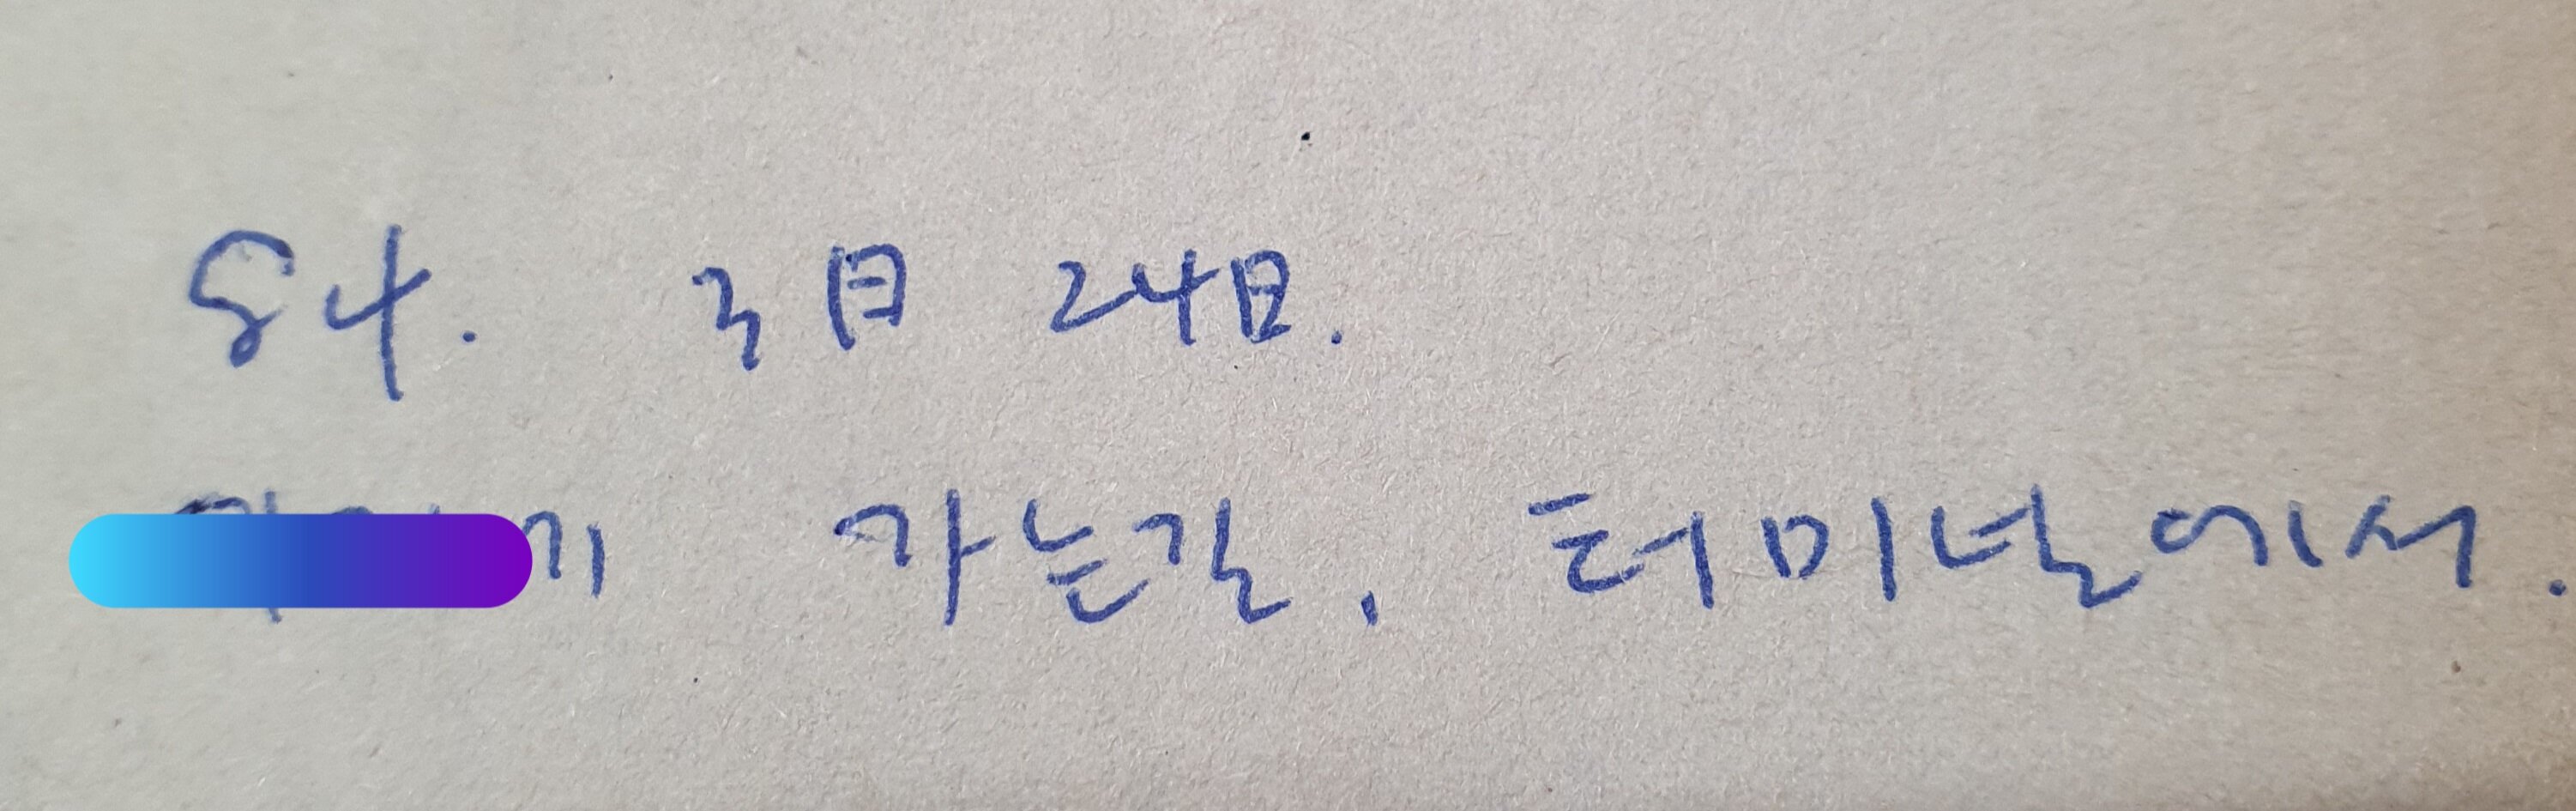 84. 3月 24日.
가는길, 터미널에서.